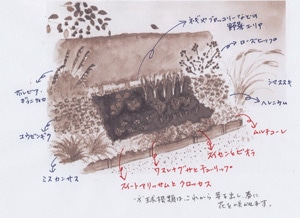 ネギやブロッコリーなどの
野菜エリア
ローズヒップ
シマススキ
ヘレニウム
ユウゼンギク
ムルチューレ
ミスカンサス
スイセンとビオラ
ワスレナグサとチューリップ
スイートアリッサムとクロッカス
*球根類はこれから芽を出し、春に
花を咲かせます。